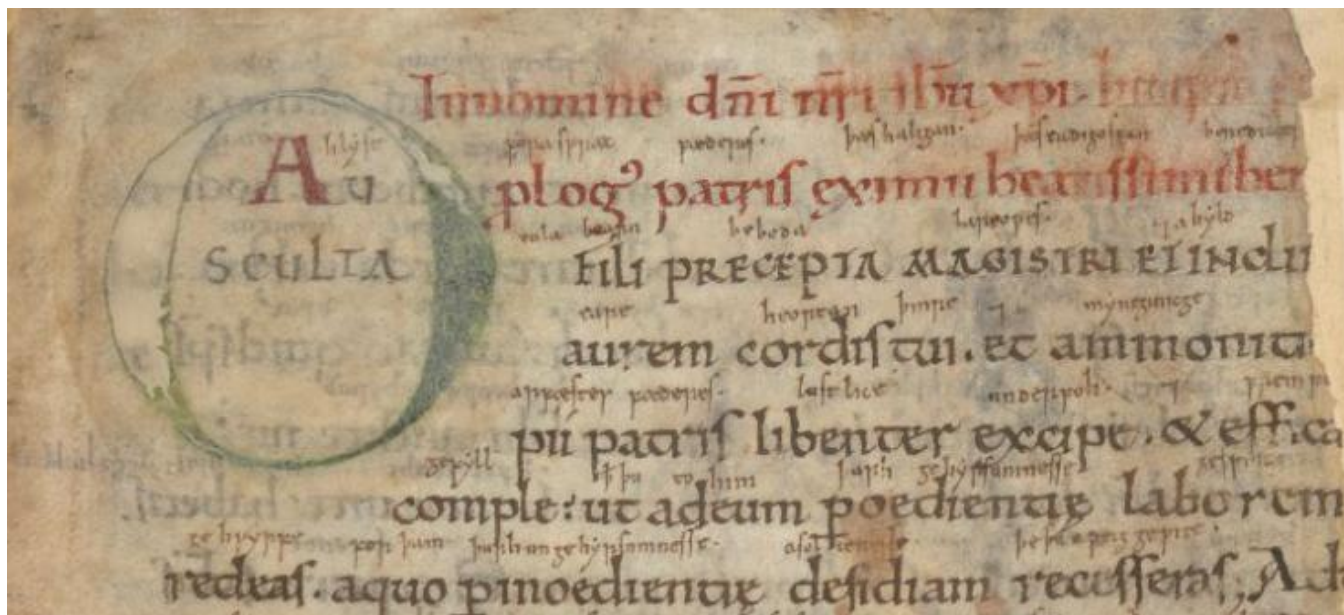 Innomine dñi nr̄i ihū xp̄i.
hlyste foraspræc fæderes. þæs haligan. þæs eadigostan
Au plogꝰ patris eximii beatissimi ben
eala bearn beboda lareoƿes. ⁊ ahyld
SCULTA FILI PRECEPTA MAGISTRI ET INCLI
eare heortan þinre ⁊ mynegunge
aurem cordis tui. et ammoniti
arfæstes fæderes. lustlice underfoh. ⁊
pii patris libenter excipe. & effica
gefyll þ þu to him þurh gehyrsumnesse
comple: ut adeum poedientię laborem
gehƿyrfe þurh ungehyrsumnesse.
redeas. aquo pinoedientię desidiam recesseras; Ad